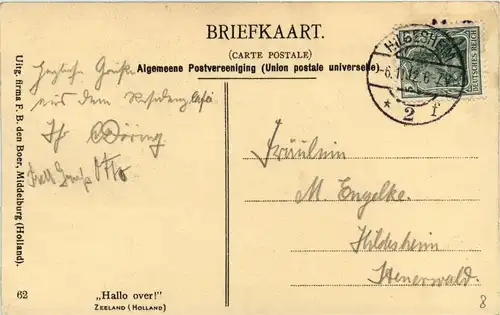 BRIEFKAART.
(CARTE POSTALE)
Algemeene Postvereeniging (Union postale universelle)
HILDESHEIM
6.11.12.6-7
* 2 f
DEUTSCHES REICH
Herzliche Grüße
aus dem Residenzcafé
Ihr Döring
Gruß Otto
Fräulein
M. Engelke.
Hildesheim
Steuerwald.
Uitg. firma F. B. den Boer, Middelburg (Holland).
62
„Hallo over!"
ZEELAND (HOLLAND)
8